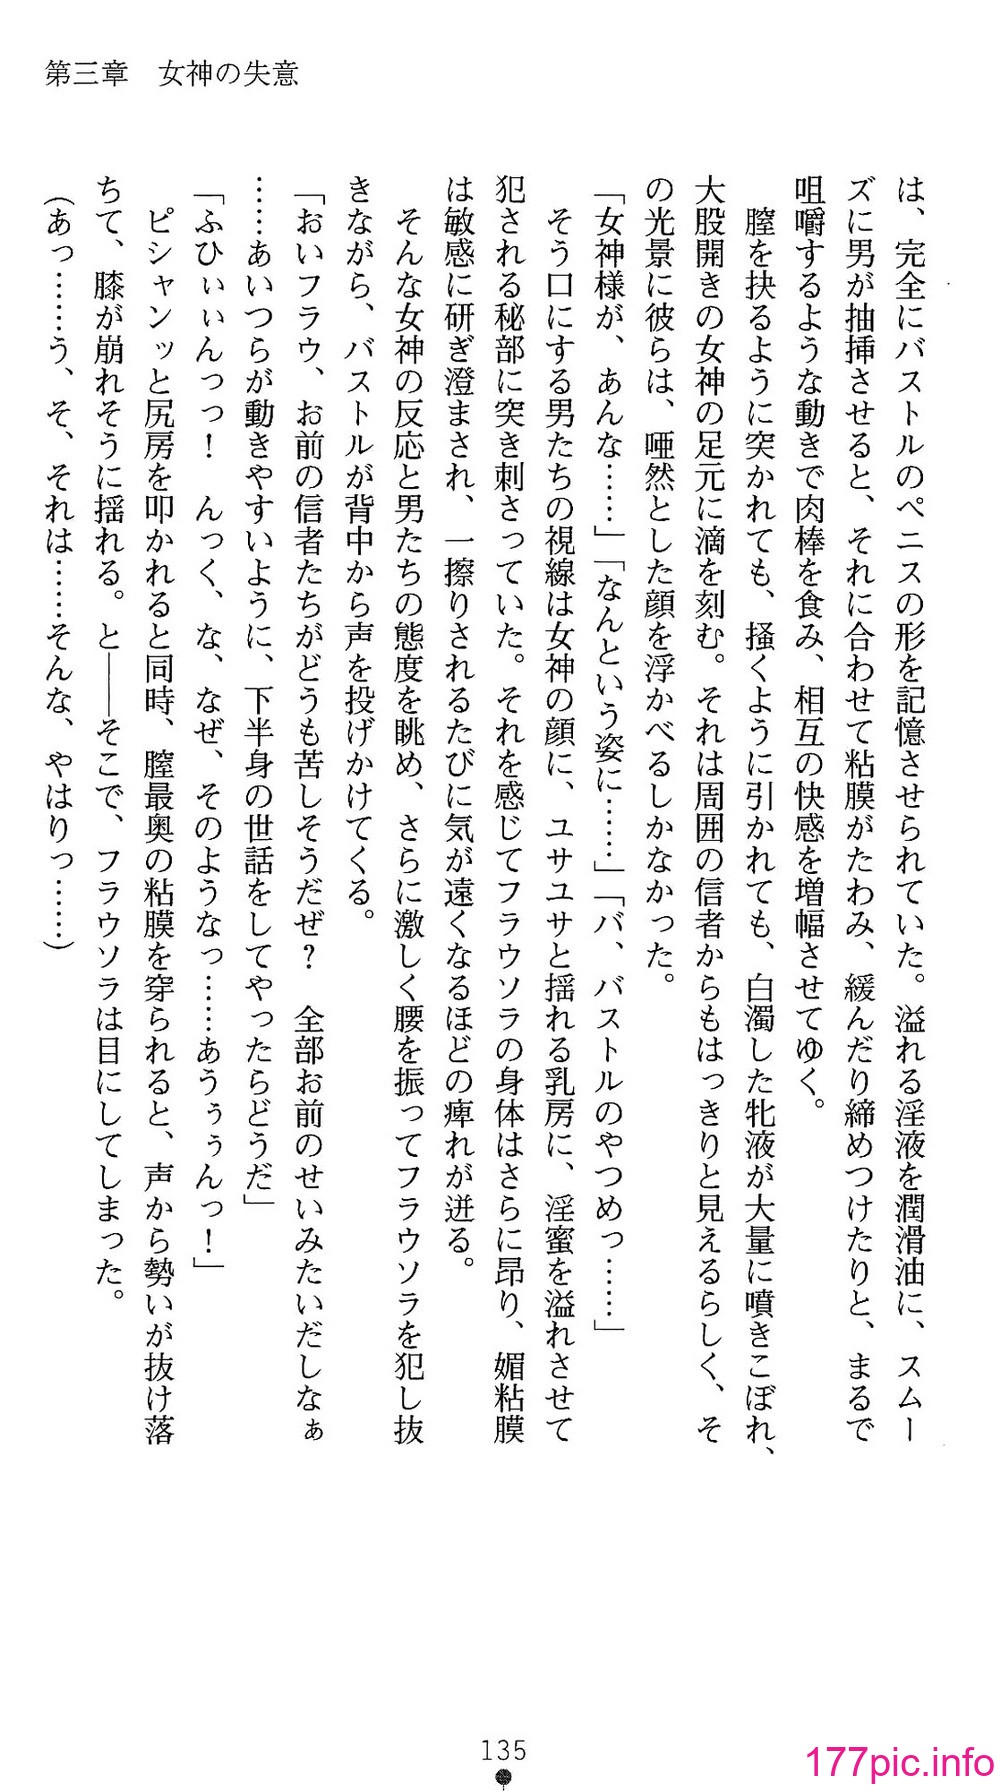 第三章　女神の失意
は、完全にバストルのペニスの形を記憶させられていた。溢れる淫液を潤滑油に、スムー
ズに男が抽挿させると、それに合わせて粘膜がたわみ、緩んだり締めつけたりと、まるで
咀嚼するような動きで肉棒を食み、相互の快感を増幅させてゆく。
　膣を抉るように突かれても、掻くように引かれても、白濁した牝液が大量に噴きこぼれ、
大股開きの女神の足元に滴を刻む。それは周囲の信者からもはっきりと見えるらしく、そ
の光景に彼らは、唖然とした顔を浮かべるしかなかった。
「女神様が、あんな……」「なんという姿に……」「バ、バストルのやつめっ……」
　そう口にする男たちの視線は女神の顔に、ユサユサと揺れる乳房に、淫蜜を溢れさせて
犯される秘部に突き刺さっていた。それを感じてフラウソラの身体はさらに昂り、媚粘膜
は敏感に研ぎ澄まされ、一擦りされるたびに気が遠くなるほどの痺れが迸る。
　そんな女神の反応と男たちの態度を眺め、さらに激しく腰を振ってフラウソラを犯し抜
きながら、バストルが背中から声を投げかけてくる。
「おいフラウ、お前の信者たちがどうも苦しそうだぜ？　全部お前のせいみたいだしなぁ
……あいつらが動きやすいように、下半身の世話をしてやったらどうだ」
「ふひぃぃんっっ！　んっく、な、なぜ、そのようなっ……あうぅぅんっ！」
　ピシャンッと尻房を叩かれると同時、膣最奥の粘膜を穿られると、声から勢いが抜け落
ちて、膝が崩れそうに揺れる。と――そこで、フラウソラは目にしてしまった。
（あっ……う、そ、それは……そんな、やはりっ……）
135
177pic.info